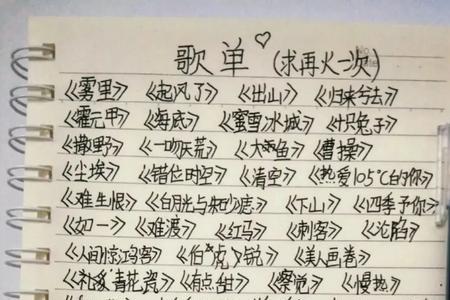 歌单♡(求再火一次)
《雾里》 《起风了》 《出山》 《归来兮去》
《霍元甲》 《海底》 《蜜雪冰城》 《十只兔子》
《撒野》 《一吻天荒》 《大鱼》 《曹操》
《尘埃》 《错位时空》 《清空》 《热爱105℃的你》
《难生恨》 《白月光与朱砂痣》 《下山》 《四季予你》
《如一》 《难渡》 《红马》 《刺客》 《沦陷》
《人间惊鸿客》 《伯虎说》 《美人画卷》
青花瓷》 《有点甜》 《察觉》 《慢热》